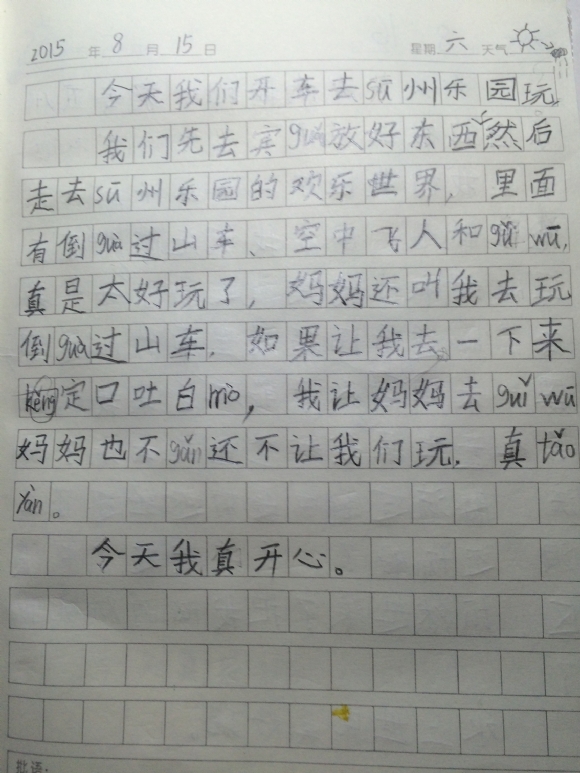 2015 年 8 月 15 日 星期 六 天气
今天我们开车去sū州乐园玩
我们先去宾guǎn放好东西然后
走去sū州乐园的欢乐世界，里面
有倒guà过山车、空中飞人和guǐ wū，
真是太好玩了，妈妈还叫我去玩
倒guà过山车，如果让我去一下来
kěng定口吐白mò，我让妈妈去guǐ wū
妈妈也不gǎn还不让我们玩，真tǎo
yàn。
今天我真开心。
批语：